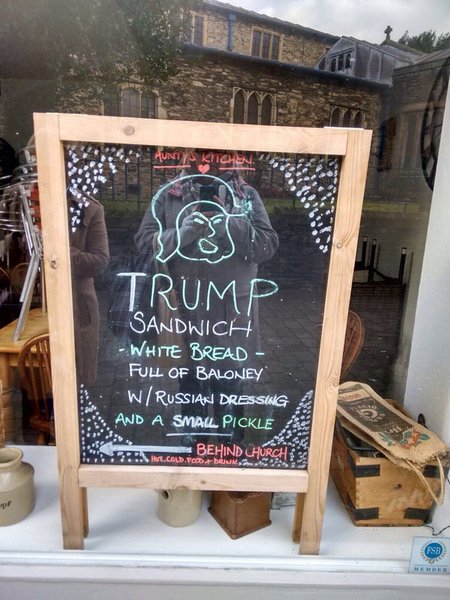 AUNTY'S KITCHEN
TRUMP
SANDWICH
- WHITE BREAD -
FULL OF BALONEY
W/ RUSSIAN DRESSING
AND A SMALL PICKLE
BEHIND CHURCH
HOT, COLD FOOD + DRINK
FSB
MEMBER